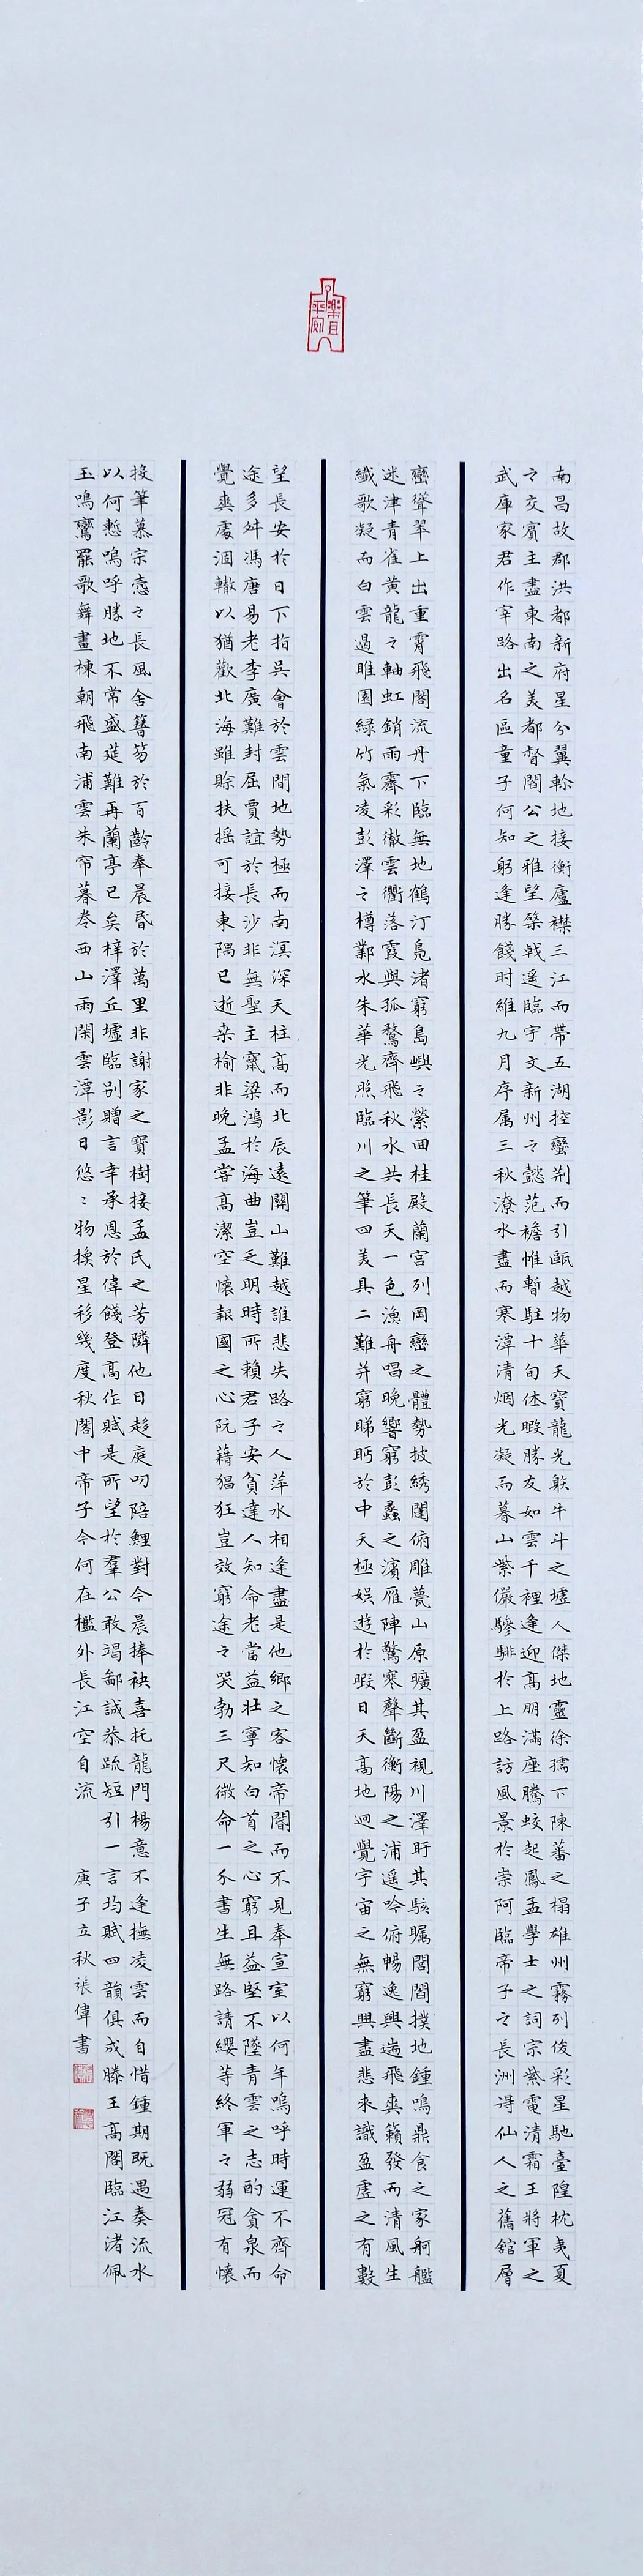 南昌故郡洪都新府星分翼軫地接衡廬襟三江而帶五湖控蠻荆而引甌越物華天寶龍光躲牛斗之墟人傑地靈徐孺下陳蕃之榻雄州霧列俊彩星馳臺隍枕夷夏
之交賓主盡東南之美都督閻公之雅望棨戟遥臨宇文新州之懿范襜帷暫駐十旬休暇勝友如雲千裡逢迎高朋滿座騰蛟起鳳孟學士之詞宗紫電清霜王將軍之
武庫家君作宰路出名區童子何知躬逢勝餞时維九月序属三秋潦水盡而寒潭清烟光凝而暮山紫儼驂騑於上路訪風景於崇阿臨帝子之長洲得仙人之舊舘層
巒聳翠上出重霄飛閣流丹下臨無地鶴汀鳧渚窮島嶼之縈回桂殿蘭宮列岡巒之體勢披綉闥俯雕甍山原曠其盈視川澤盱其駭矚閭閻撲地鍾鳴鼎食之家舸艦
迷津青雀黄龍之軸虹銷雨霽彩徹雲衢落霞與孤鶩齊飛秋水共長天一色漁舟唱晚響窮彭蠡之濱雁陣驚寒聲斷衡陽之浦遥吟俯暢逸興遄飛爽籟發而清風生
纖歌凝而白雲遏睢園緑竹氣凌彭澤之樽鄴水朱華光照臨川之筆四美具二難并窮睇眄於中天極娱遊於暇日天高地迥覺宇宙之無窮興盡悲來識盈虛之有數
望長安於日下指吳會於雲間地勢極而南溟深天柱高而北辰遠關山難越誰悲失路之人萍水相逢盡是他鄉之客懷帝閽而不見奉宣室以何年嗚呼時運不齊命
途多舛馮唐易老李廣難封屈賈誼於長沙非無聖主竄梁鴻於海曲豈乏明時所賴君子安貧達人知命老當益壯寧知白首之心窮且益堅不墜青雲之志酌貪泉而
覺爽處涸轍以猶歡北海雖賒扶摇可接東隅已逝桒榆非晚孟嘗高潔空懷報國之心阮藉猖狂豈效窮途之哭勃三尺微命一介書生無路請纓等終軍之弱冠有懷
投筆慕宗慤之長風舍簪笏於百齡奉晨昏於萬里非謝家之寶樹接孟氏之芳隣他日趍庭叨陪鯉對今晨捧袂喜托龍門楊意不逢撫凌雲而自惜鍾期既遇奏流水
以何慙嗚呼勝地不常盛筵難再蘭亭已矣梓澤丘墟臨别贈言幸承恩於偉餞登高作賦是所望於羣公敢竭鄙誠恭疏短引一言均賦四韻俱成滕王高閣臨江渚佩
玉鳴鸞罷歌舞畫棟朝飛南浦雲朱帘暮卷西山雨閑雲潭影日悠々物换星移幾度秋閣中帝子今何在檻外長江空自流 庚子立秋張偉書